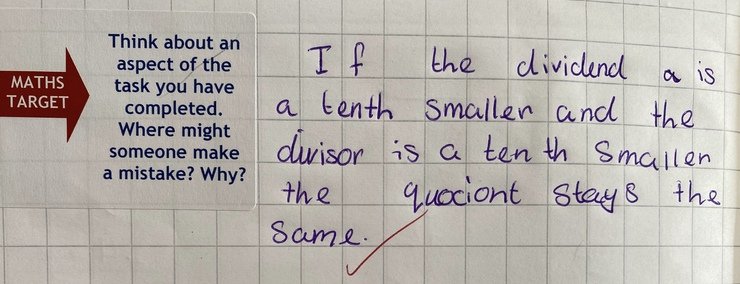 MATHS
TARGET
Think about an
aspect of the
task you have
completed.
Where might
someone make
a mistake? Why?
If the dividend a is
a tenth smaller and the
divisor is a tenth smaller
the quociont stays the
same.